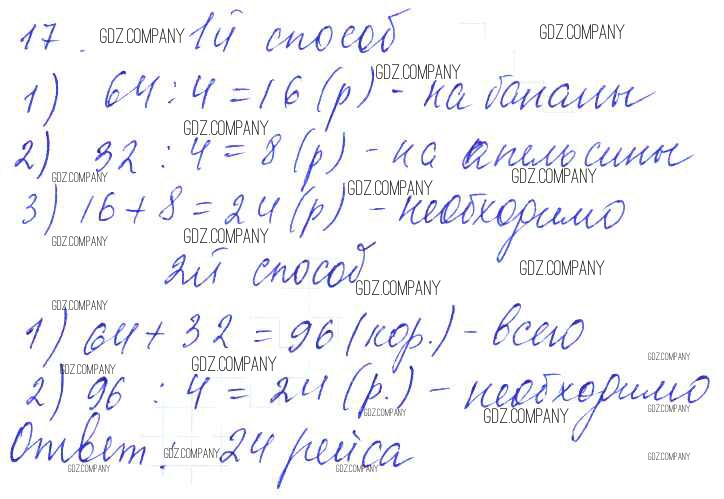 17. GDZ.COMPANY 1й способ GDZ.COMPANY
GDZ.COMPANY
1) 64 : 4 = 16 (р) - на бананы
GDZ.COMPANY
2) 32 : 4 = 8 (р) - на апельсины
GDZ.COMPANY GDZ.COMPANY
GDZ.COMPANY
3) 16 + 8 = 24 (р) - необходимо
GDZ.COMPANY GDZ.COMPANY
2й способ GDZ.COMPANY
GDZ.COMPANY
GDZ.COMPANY
1) 64 + 32 = 96 (кор.) - всего
GDZ.COMPANY GDZ.COMPANY GDZ.COMPANY
2) 96 : 4 = 24 (р.) - необходимо
GDZ.COMPANY GDZ.COMPANY GDZ.COMPANY
Ответ: 24 рейса
GDZ.COMPANY GDZ.COMPANY GDZ.COMPANY GDZ.COMPANY